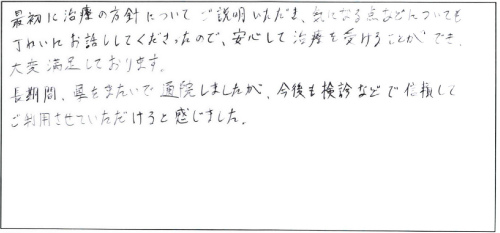 最初に治療の方針についてご説明いただき、気になる点などについても
丁ねいにお話ししてくださったので、安心して治療を受けることができ、
大変満足しております。
長期間、県をまたいで通院しましたが、今後も検診などで信頼して
ご利用させていただけると感じました。